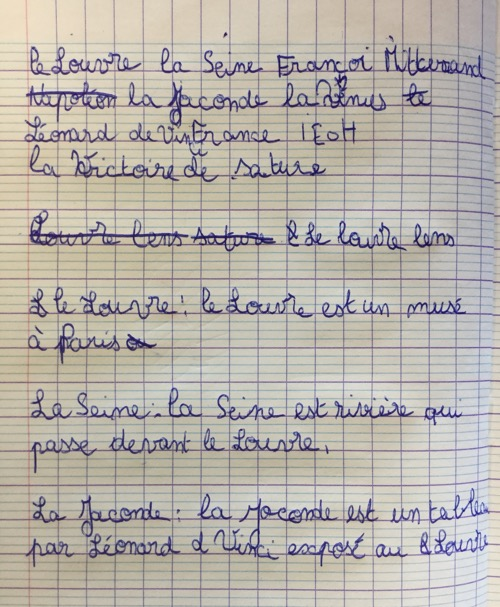 le Louvre la Seine Françoi Mitterand
Napoléon la Jaconde la Vénus te
Léonard de Vin France IEoH
la Victoire de sature
Louvre lens sature Le louvre lens
le Louvre : le Louvre est un musé
à Paris
La Seine : la Seine est rivière qui
passe devant le Louvre.
La Jaconde : la Joconde est un tableau
par Léonard d Vinci exposé au Louvre